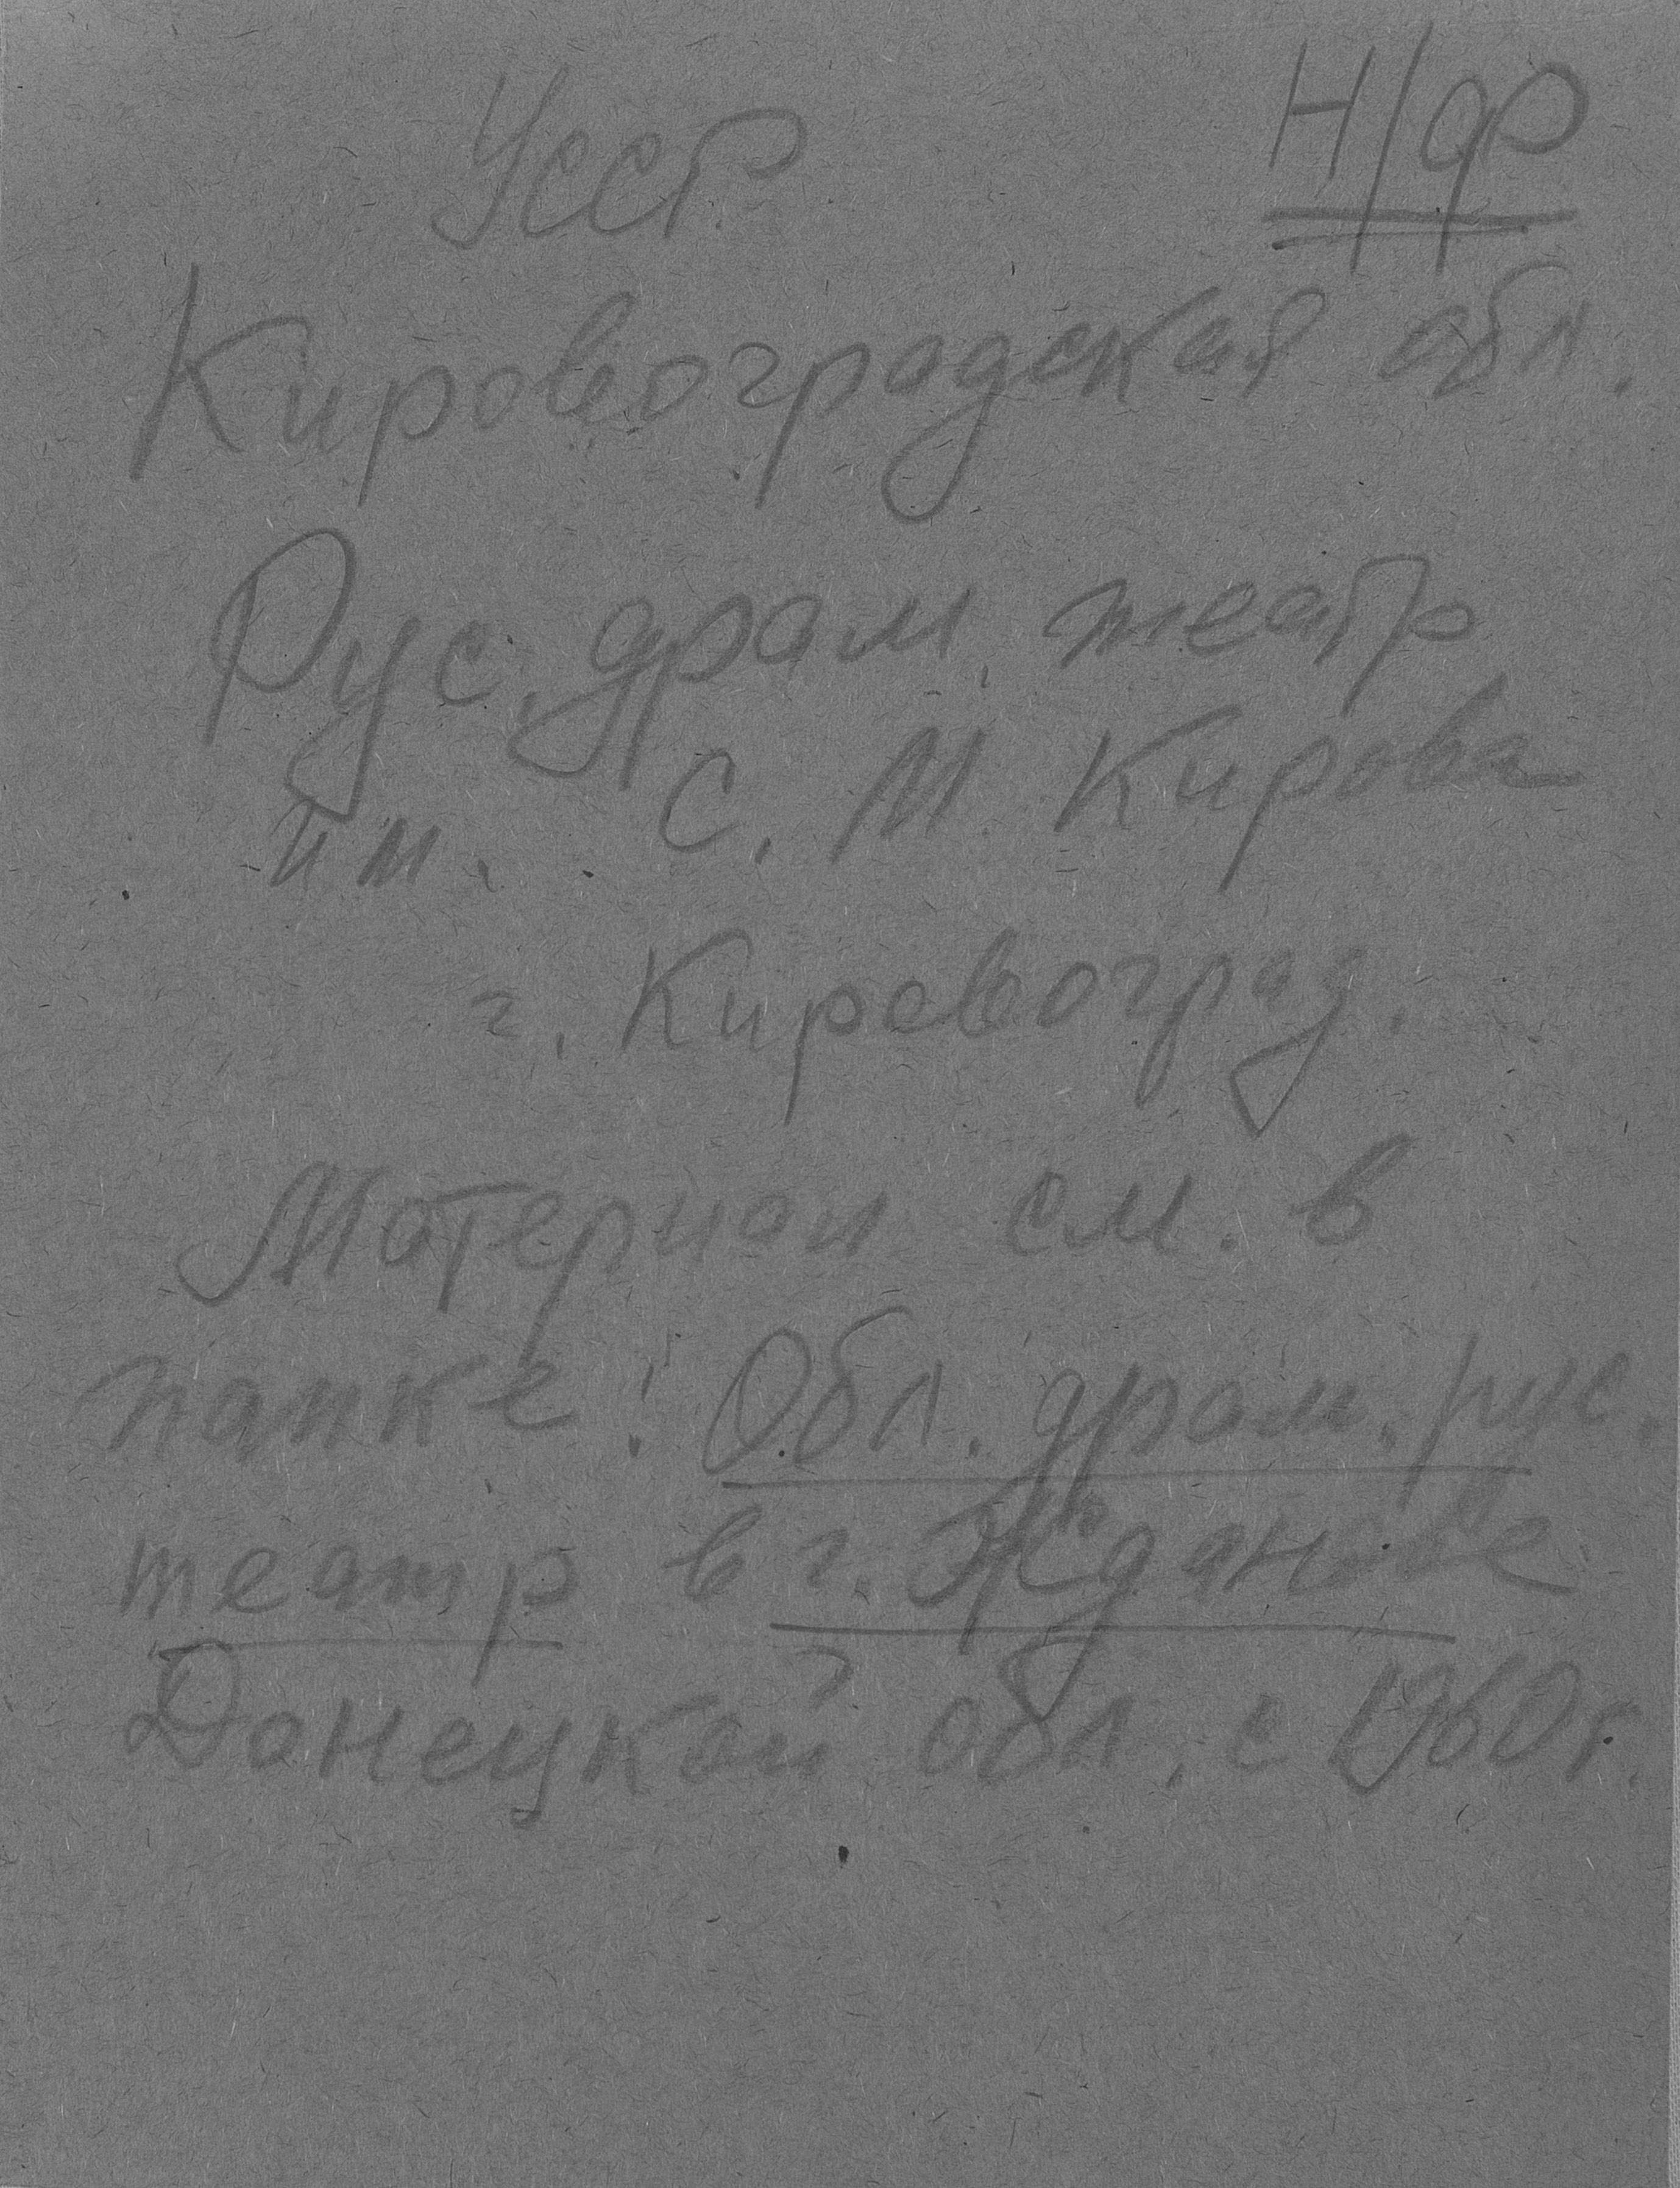 УССР Н/ф
Кировоградская обл.
Рус. драм. театр
им. С. М. Кирова
г. Кировоград.
Материал см. в
папке: Обл. драм. рус.
театр в г. Жданове
Донецкой обл. с 1960 г.